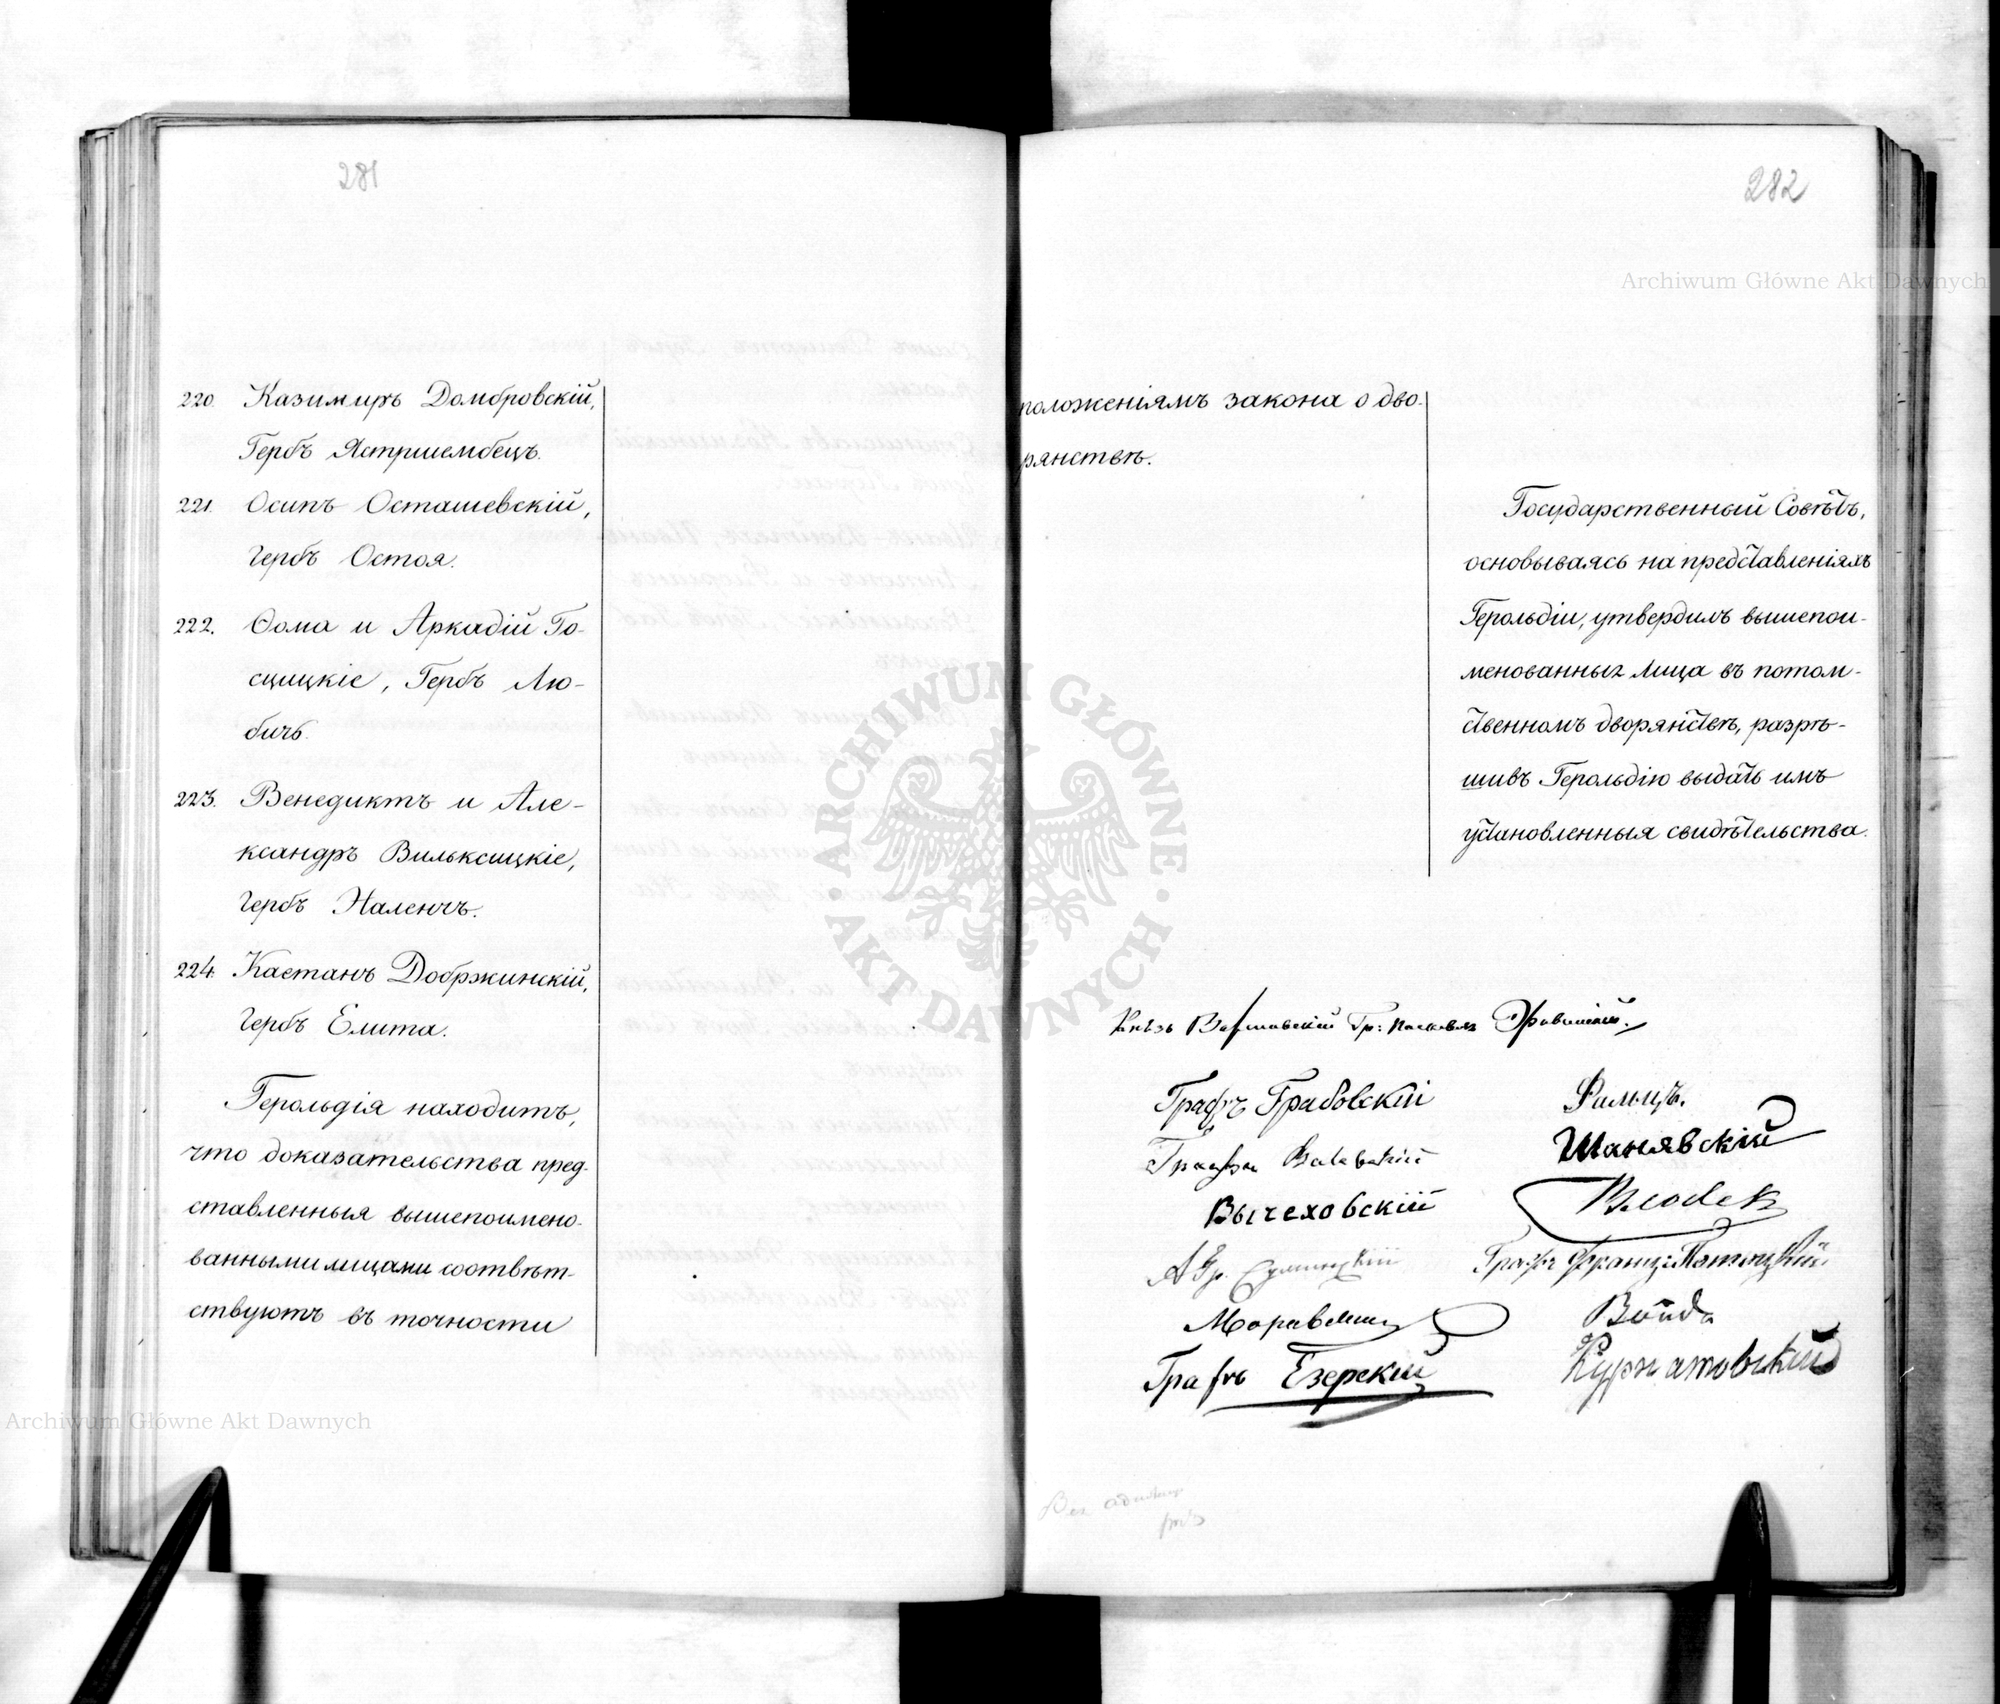 281
220. Казимиръ Домбровскій,
Гербъ Ястршембецъ.
221. Осипъ Осташевскій,
Гербъ Остоя.
222. Ѳома и Аркадій Го-
сцицкіе, Гербъ Лю-
бичъ.
223. Венедиктъ и Але-
ксандръ Вильксицкіе,
Гербъ Наленчъ.
224. Каетанъ Добржинскій,
Гербъ Елита.
Герольдія находитъ,
что доказательства пред-
ставленныя вышепоимено-
ванными лицами соотвѣт-
ствуютъ въ точности
282
положеніямъ закона о дво-
рянствѣ.
Государственный Совѣтъ,
основываясь на представленіяхъ
Герольдіи, утвердилъ вышепои-
менованныхъ лица въ потом-
ственномъ дворянствѣ, разрѣ-
шивъ Герольдію выдать имъ
установленныя свидѣтельства.
Князь Варшавскій Гр: Паскевичъ Эриванскій.
Графъ Грабовскій
Фальцъ.
Шанявскій
Графъ
Вычеховскій
Влодек
А Гр.
Графъ Франц: Потоцкій
Моравскій
Войда
Графъ Езерскій
Курнатовскій
Archiwum Główne Akt Dawnych
Archiwum Główne Akt Dawnych
ARCHIWUM GŁÓWNE · AKT DAWNYCH ·